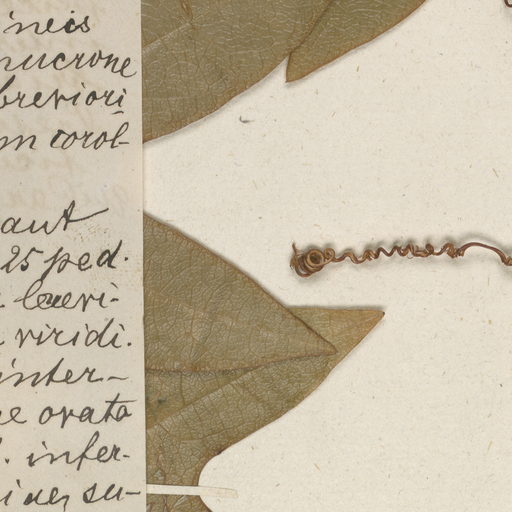 neis
mucrone
breviori
m corol-
aut
25 ped.
laevi-
viridi.
inter-
ovata
infer-
su-